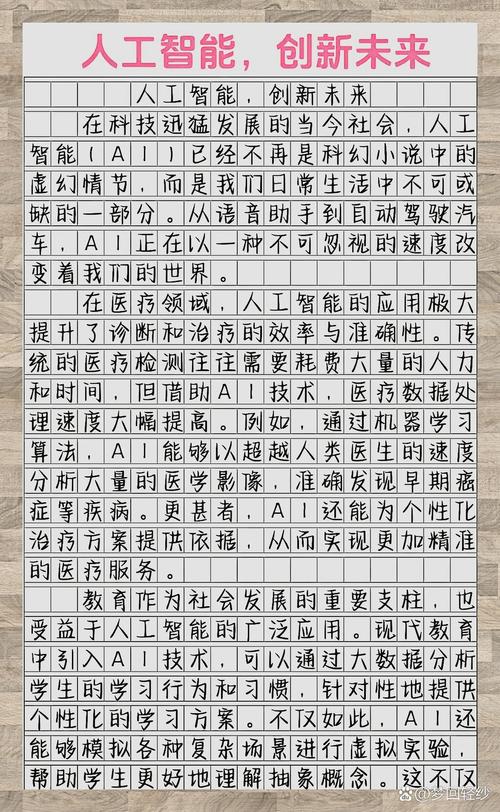 人工智能，创新未来
人工智能，创新未来
在科技迅猛发展的当今社会，人工
智能（AI）已经不再是科幻小说中的
虚幻情节，而是我们日常生活中不可或
缺的一部分。从语音助手到自动驾驶汽
车，AI正在以一种不可忽视的速度改
变着我们的世界。
在医疗领域，人工智能的应用极大
提升了诊断和治疗的效率与准确性。传
统的医疗检测往往需要耗费大量的人力
和时间，但借助AI技术，医疗数据处
理速度大幅提高。例如，通过机器学习
算法，AI能够以超越人类医生的速度
分析大量的医学影像，准确发现早期癌
症等疾病。更甚者，AI还能为个性化
治疗方案提供依据，从而实现更加精准
的医疗服务。
教育作为社会发展的重要支柱，也
受益于人工智能的广泛应用。现代教育
中引入AI技术，可以通过大数据分析
学生的学习行为和习惯，针对性地提供
个性化的学习方案。不仅如此，AI还
能够模拟各种复杂场景进行虚拟实验，
帮助学生更好地理解抽象概念。这不仅
@梦回轻纱